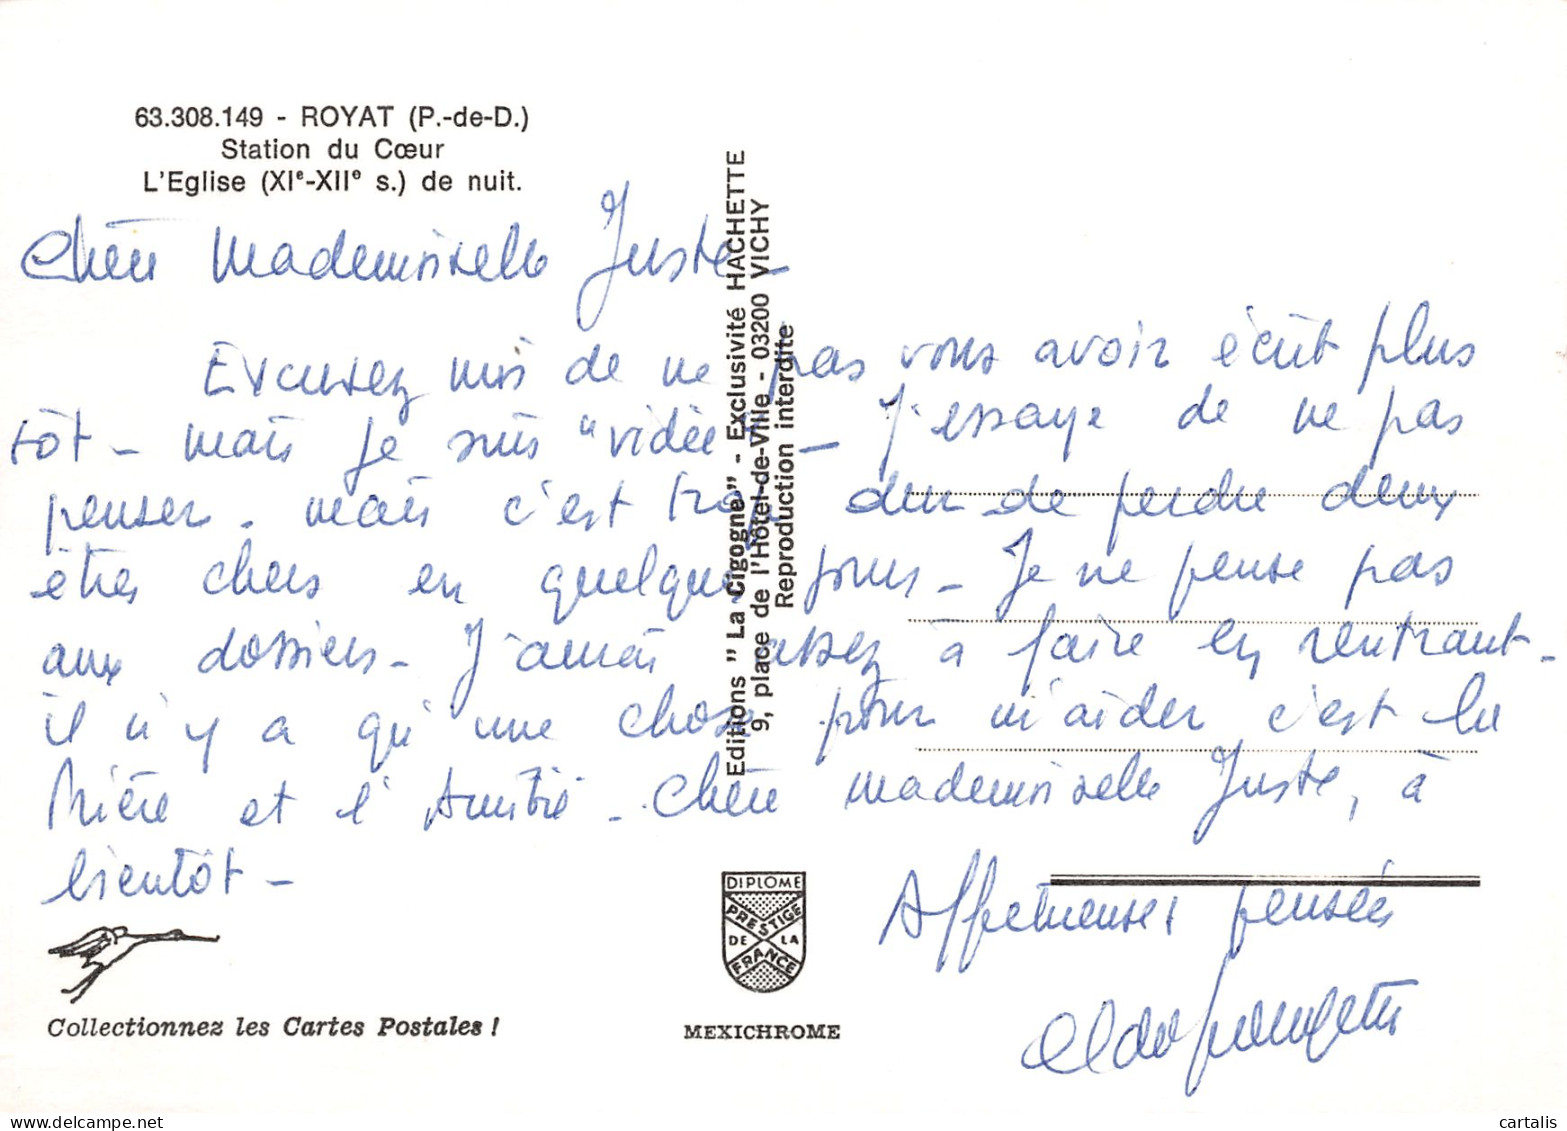 63.308.149 - ROYAT (P.-de-D.)
Station du Cœur
L'Eglise (XIᵉ-XIIᵉ s.) de nuit.
Chère Mademoiselle Juste -
Excusez moi de ne pas vous avoir écrit plus
tôt - mais je suis "vidée" - J'essaye de ne pas
penser - mais c'est trop dur de perdre deux
êtres chers en quelques jours - Je ne pense pas
aux dossiers - J'aurai assez à faire en rentrant -
il n'y a qu'une chose pour m'aider c'est la
Prière et l'Amitié - Chère mademoiselle Juste, à
bientôt -
Affectueuses pensées
Editions "La Cigogne" - Exclusivité HACHETTE
9, place de l'Hôtel-de-Ville - 03200 VICHY
Reproduction interdite
DIPLOME
PRESTIGE
DE LA
FRANCE
MEXICHROME
Collectionnez les Cartes Postales !
cartalis